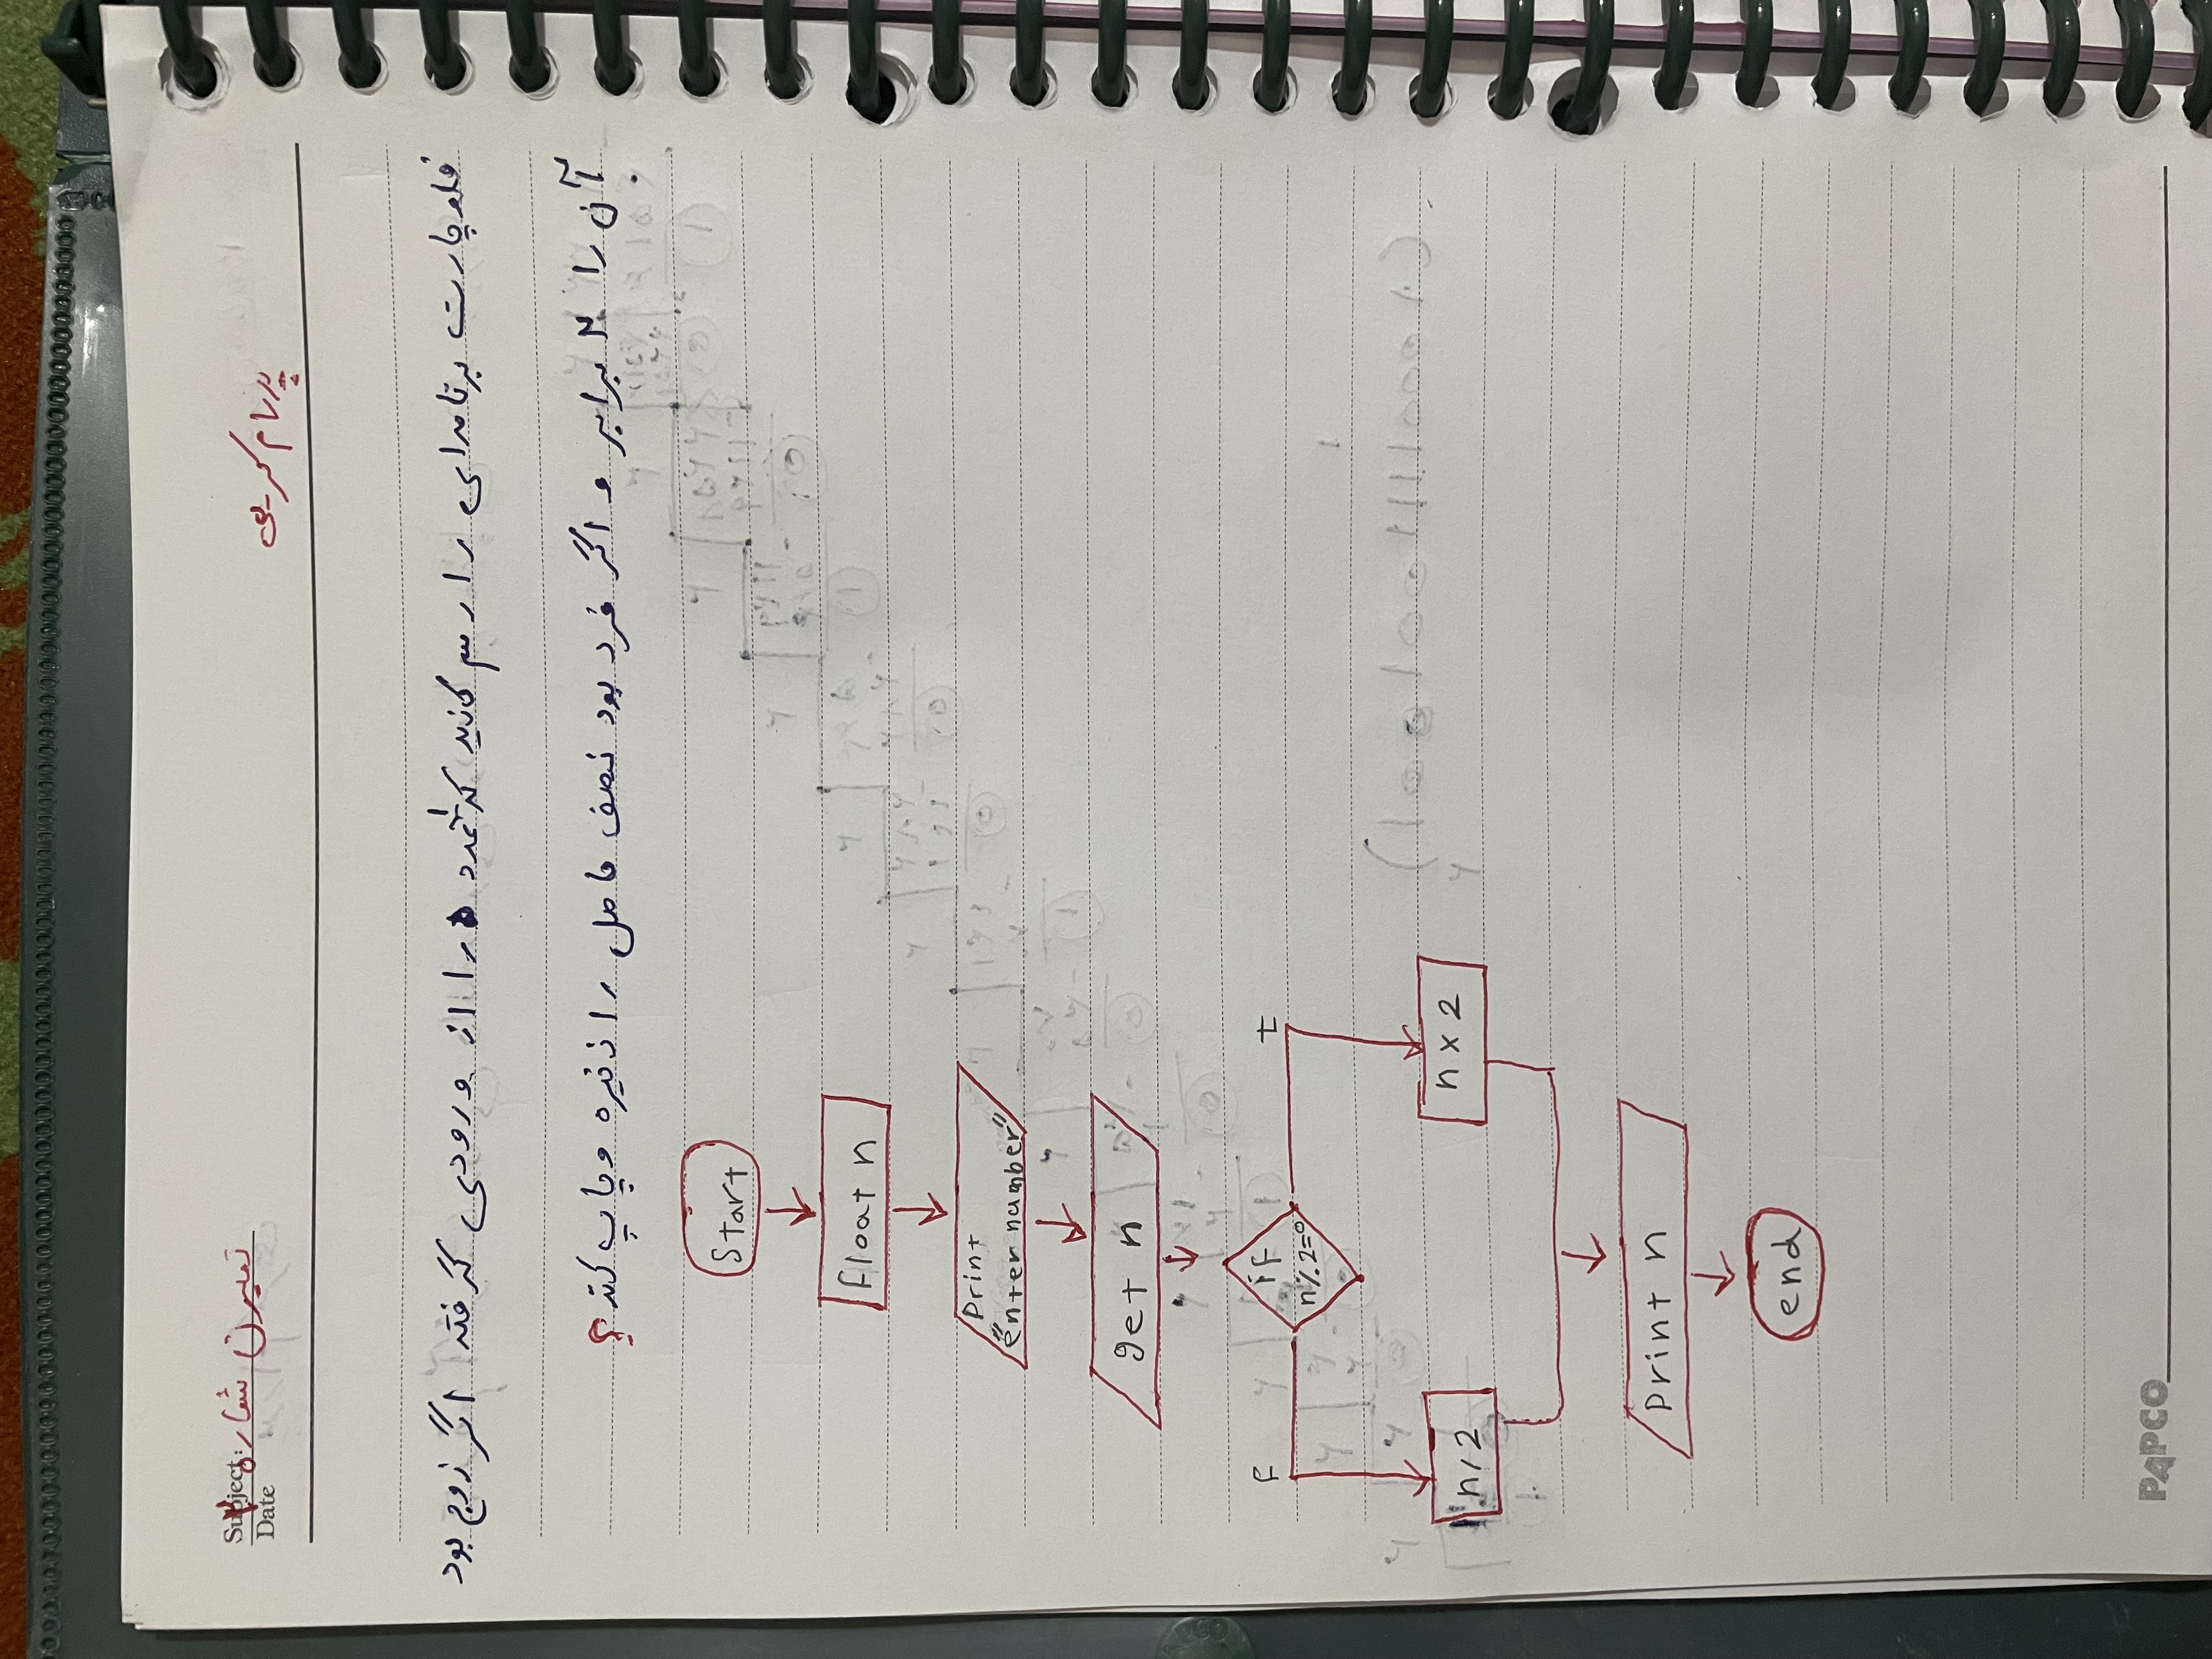 Subject:
Date
تمیرن شماره ۲
پدرام کریمی
فلوچارت برنامه‌ای را رسم کنید که ۱ عدد را از ورودی گرفته اگر زوج بود
آن را ۲ برابر و اگر فرد بود نصف حاصل را ذخیره و چاپ کند؟
Start
float n
Print
"enter number"
get n
if
n%2=0
F
t
n/2
n x 2
Print n
end
PAPCO